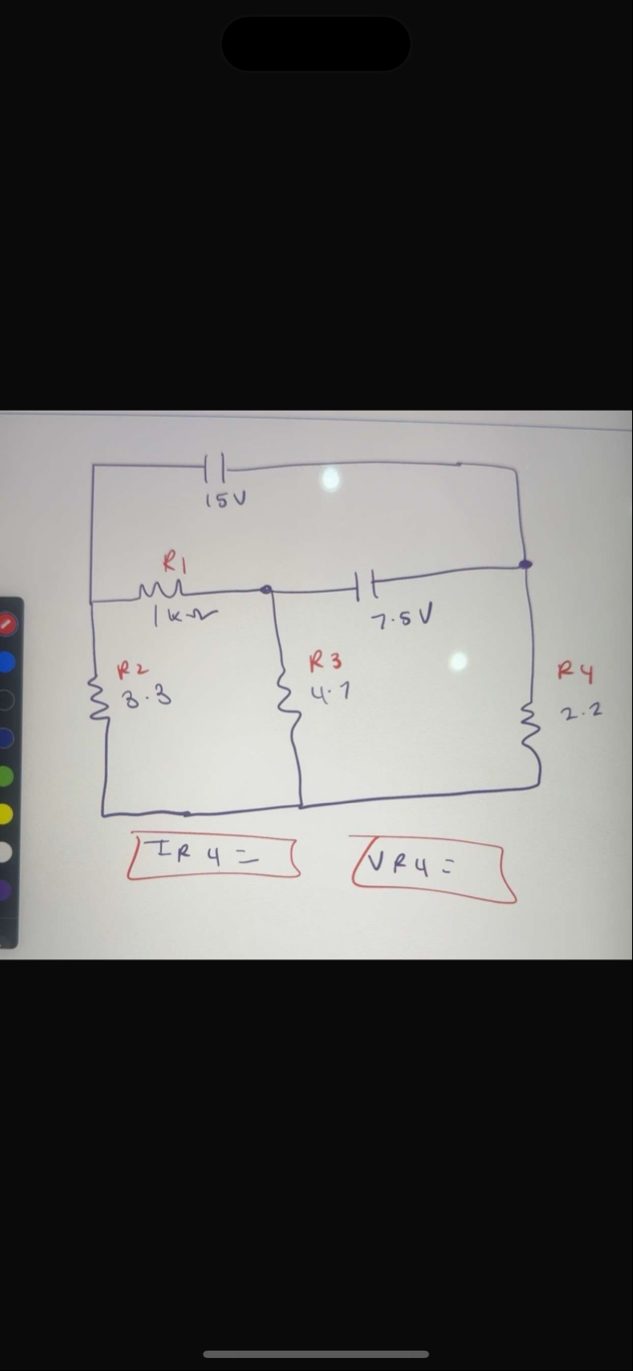 15V
R1
1kΩ
7.5V
R2
3.3
R3
4.7
R4
2.2
IR4=
VR4=